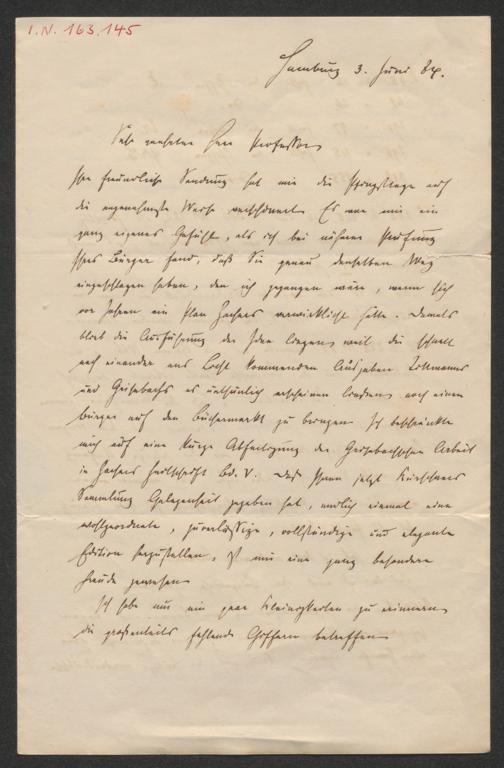 I.N. 163.145
Hamburg 3. Juni 84.
Sehr verehrter Herr Professor,
Ihre freundliche Sendung hat mir die Pfingsttage auf
die angenehmste Weise verschönert. Es war mir ein
ganz eigenes Gefühl, als ich bei näherer Prüfung
Ihres Bürger fand, daß Sie genau denselben Weg
eingeschlagen haben, den ich gegangen wäre, wenn sich
vor Jahren ein Plan verwirklicht hätte. Damals
blieb die Ausführung der Idee liegen, weil die schnell
nach einander ans Licht kommenden Ausgaben Tittmanns
und Grisebachs es unthunlich erscheinen ließen, noch einen
Bürger auf den Büchermarkt zu bringen. Ich beschränkte
mich auf eine kurze Abfertigung der Grisebachschen Arbeit
in Zeitschrift Bd. V. Daß Ihnen jetzt Kürschners
Sammlung Gelegenheit gegeben hat, endlich einmal eine
wohlgeordnete, zuverlässige, vollständige und elegante
Edition herzustellen, ist mir eine ganz besondere
Freude gewesen.
Ich habe nur ein paar Kleinigkeiten zu erinnern,
die großenteils fehlende Chiffern betreffen.